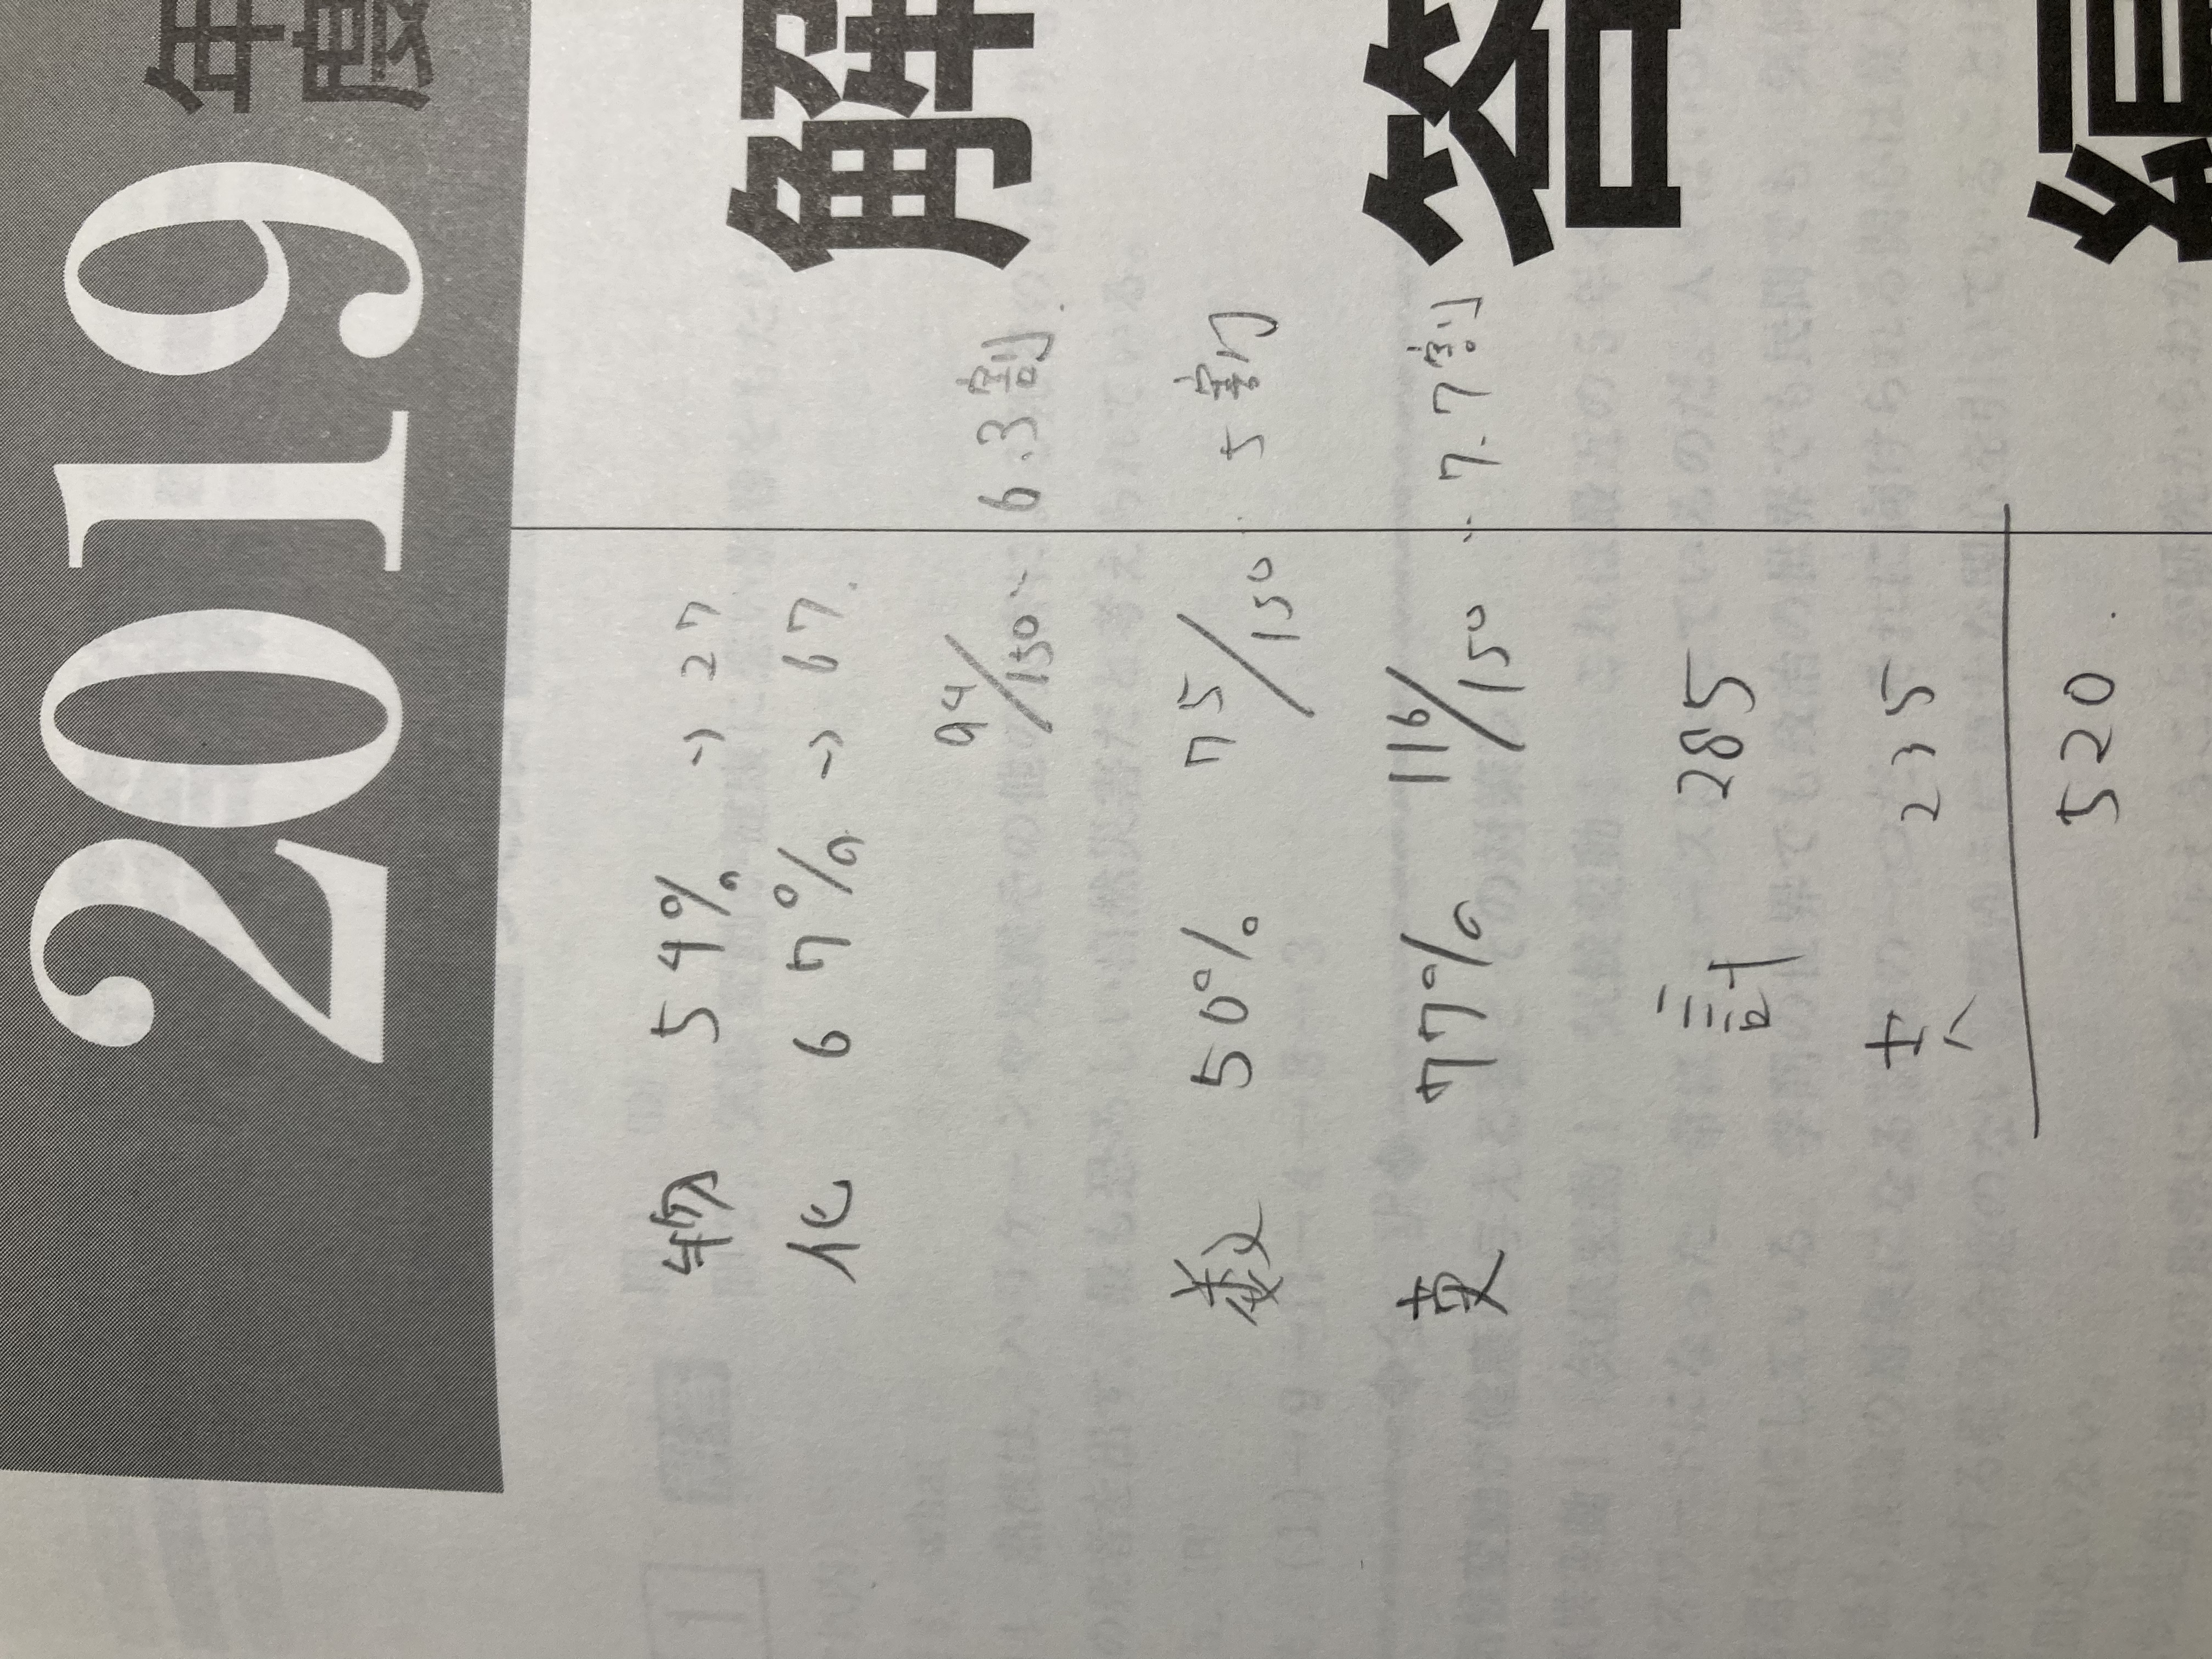 2019 年度
解答編
物 54% → 27
化 67% → 67.
94/150 … 6.3割.
数 50% 75/150 … 5割
英 77% 116/150 … 7.7割
計 285
共 235
520.